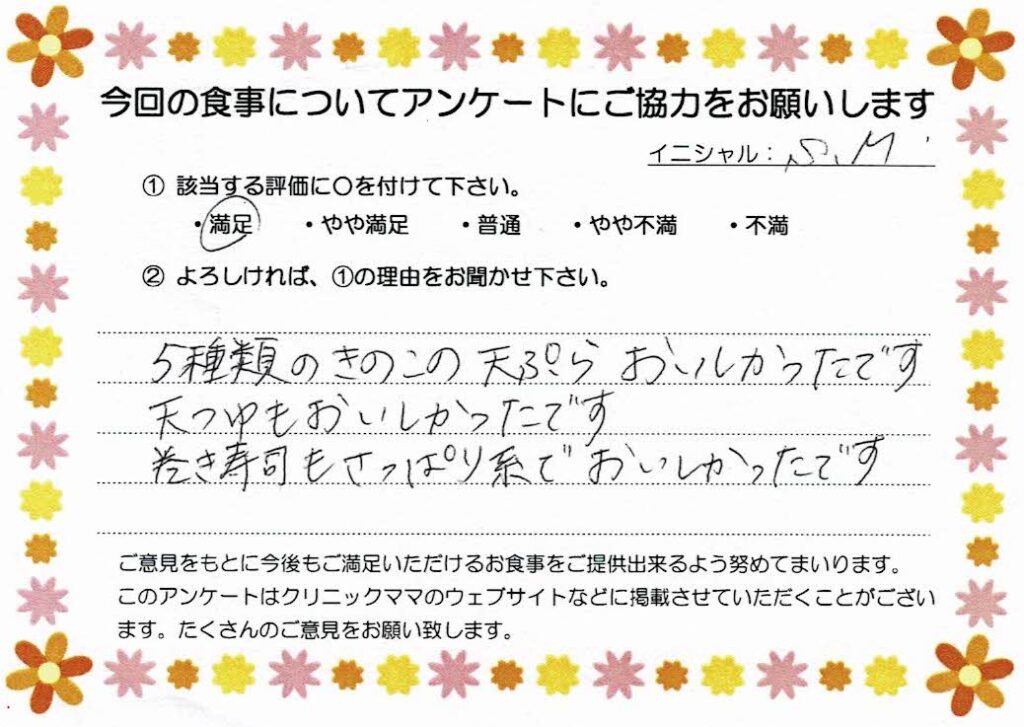 今回の食事についてアンケートにご協力をお願いします
イニシャル：S.M
① 該当する評価に○を付けて下さい。
・満足 ・やや満足 ・普通 ・やや不満 ・不満
② よろしければ、①の理由をお聞かせ下さい。
5種類のきのこの天ぷらおいしかったです
天つゆもおいしかったです
巻き寿司もさっぱり系でおいしかったです
ご意見をもとに今後もご満足いただけるお食事をご提供出来るよう努めてまいります。
このアンケートはクリニックママのウェブサイトなどに掲載させていただくことがござい
ます。たくさんのご意見をお願い致します。